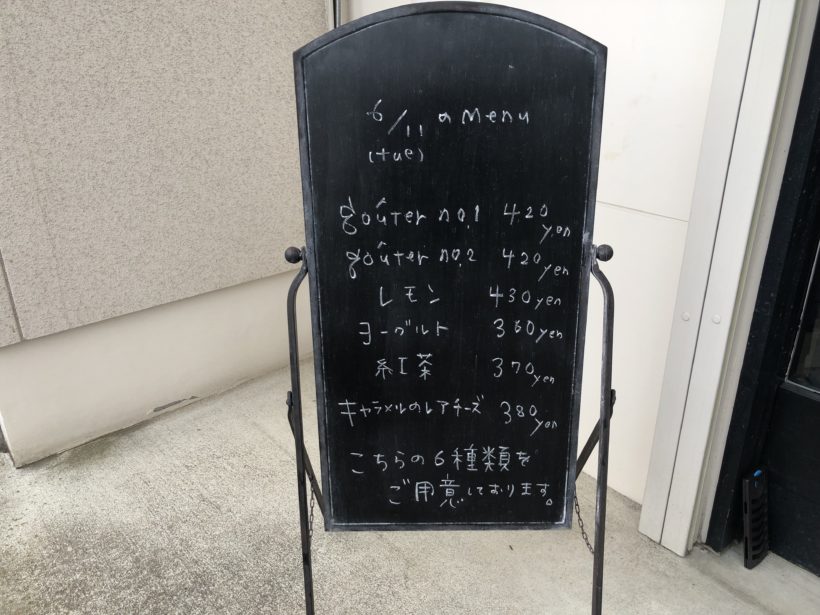 6/11のMenu
(tue)
goûter no,1 420yen
goûter no,2 420yen
レモン 430yen
ヨーグルト 360yen
紅茶 370yen
キャラメルのレアチーズ 380yen
こちらの6種類を
ご用意しております。